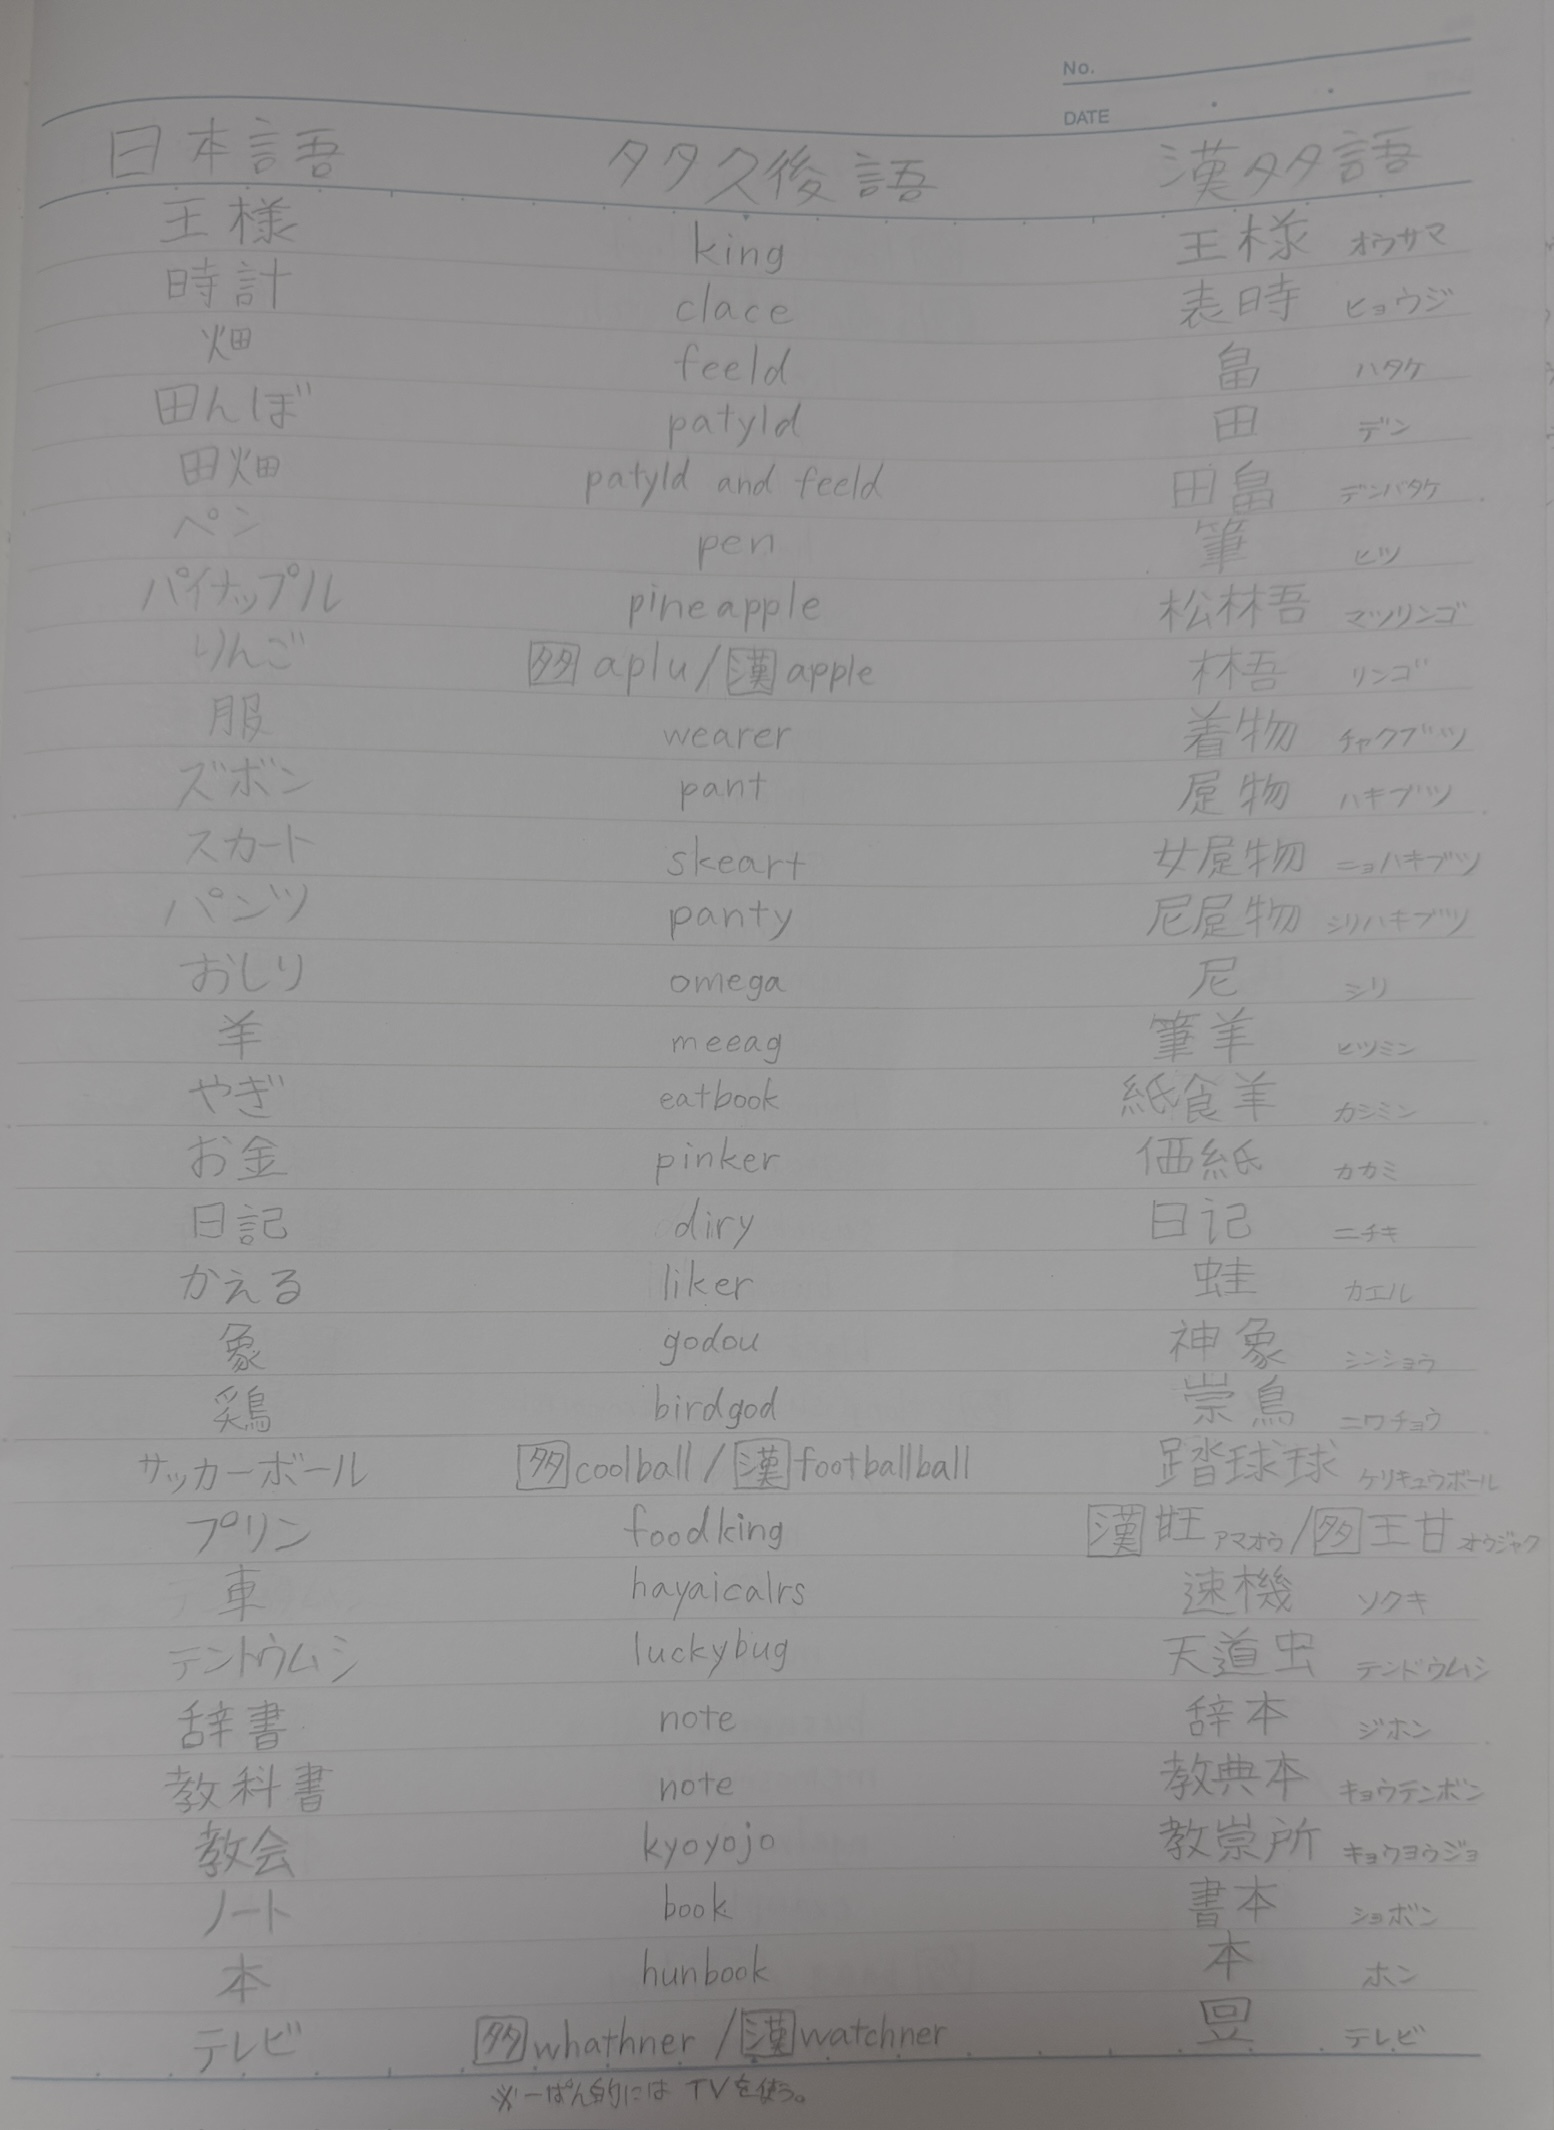 No.
DATE
日本語 タタ久後語 漢タタ語
王様 king 王様 オウサマ
時計 clace 表時 ヒョウジ
畑 feeld 畠 ハタケ
田んぼ patyld 田 デン
田畑 patyld and feeld 田畠 デンバタケ
ペン pen 筆 ヒツ
パイナップル pineapple 松林吾 マツリンゴ
りんご 多 aplu / 漢 apple 林吾 リンゴ
服 wearer 着物 チャクブツ
ズボン pant 物 ハキブツ
スカート skeart 女物 ニョハキブツ
パンツ panty 尼物 シリハキブツ
おしり omega 尼 シリ
羊 meeag 筆羊 ヒツミン
やぎ eatbook 紙食羊 カシミン
お金 pinker 価紙 カカミ
日記 diry 日记 ニチキ
かえる liker 蛙 カエル
象 godou 神象 シンショウ
鶏 birdgod 崇鳥 ニワチョウ
サッカーボール 多 coolball / 漢 footballball 踏球球 ケリキュウボール
プリン foodking 漢 甘王 アマオウ / 多 王甘 オウジャク
車 hayaicalrs 速機 ソクキ
テントウムシ luckybug 天道虫 テンドウムシ
辞書 note 辞本 ジホン
教科書 note 教典本 キョウテンボン
教会 kyoyojo 教崇所 キョウヨウジョ
ノート book 書本 ショボン
本 hunbook 本 ホン
テレビ 多 whathner / 漢 watchner テレビ
※一ぱん的には TVを使う。